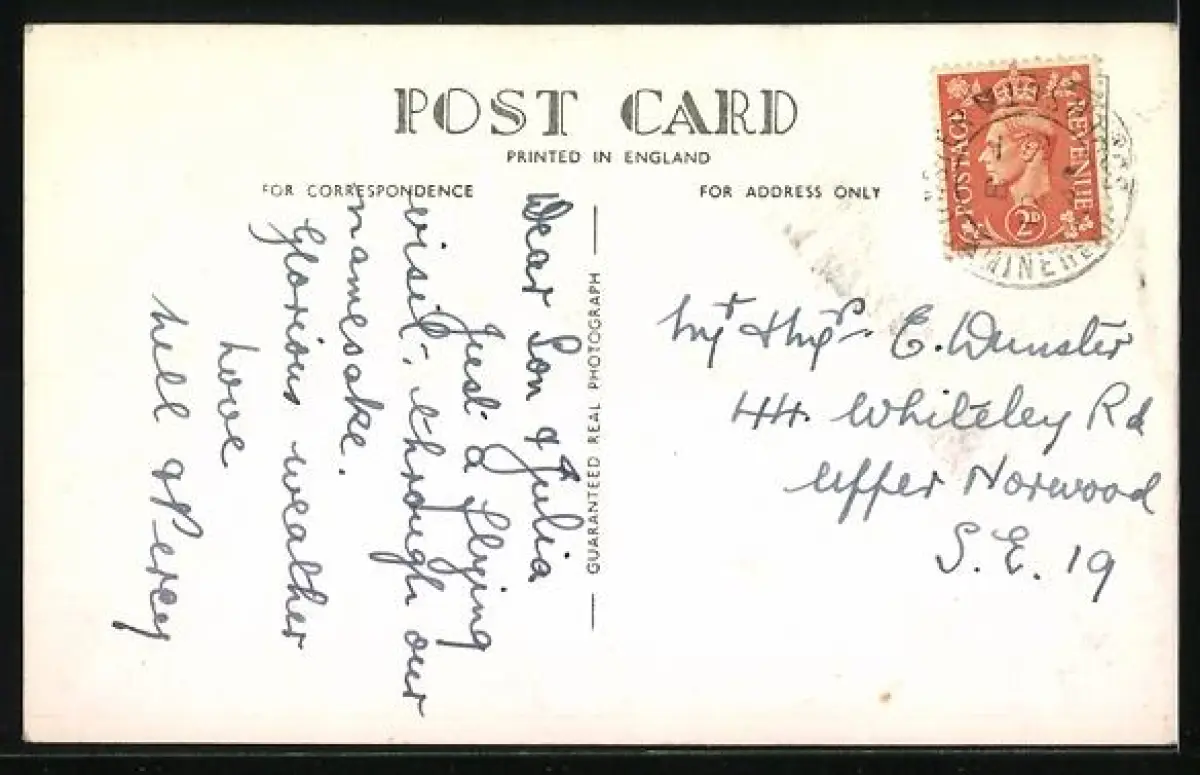 POST CARD
PRINTED IN ENGLAND
FOR CORRESPONDENCE
FOR ADDRESS ONLY
POSTAGE
REVENUE
2D
MINEHE
GUARANTEED REAL PHOTOGRAPH
Dear Son & Julia
Just a flying
visit, through our
namesake.
Glorious weather
Love
Nell & Percy
Mr & Mrs E. Dunster
44. Whiteley Rd
Upper Norwood
S.E. 19